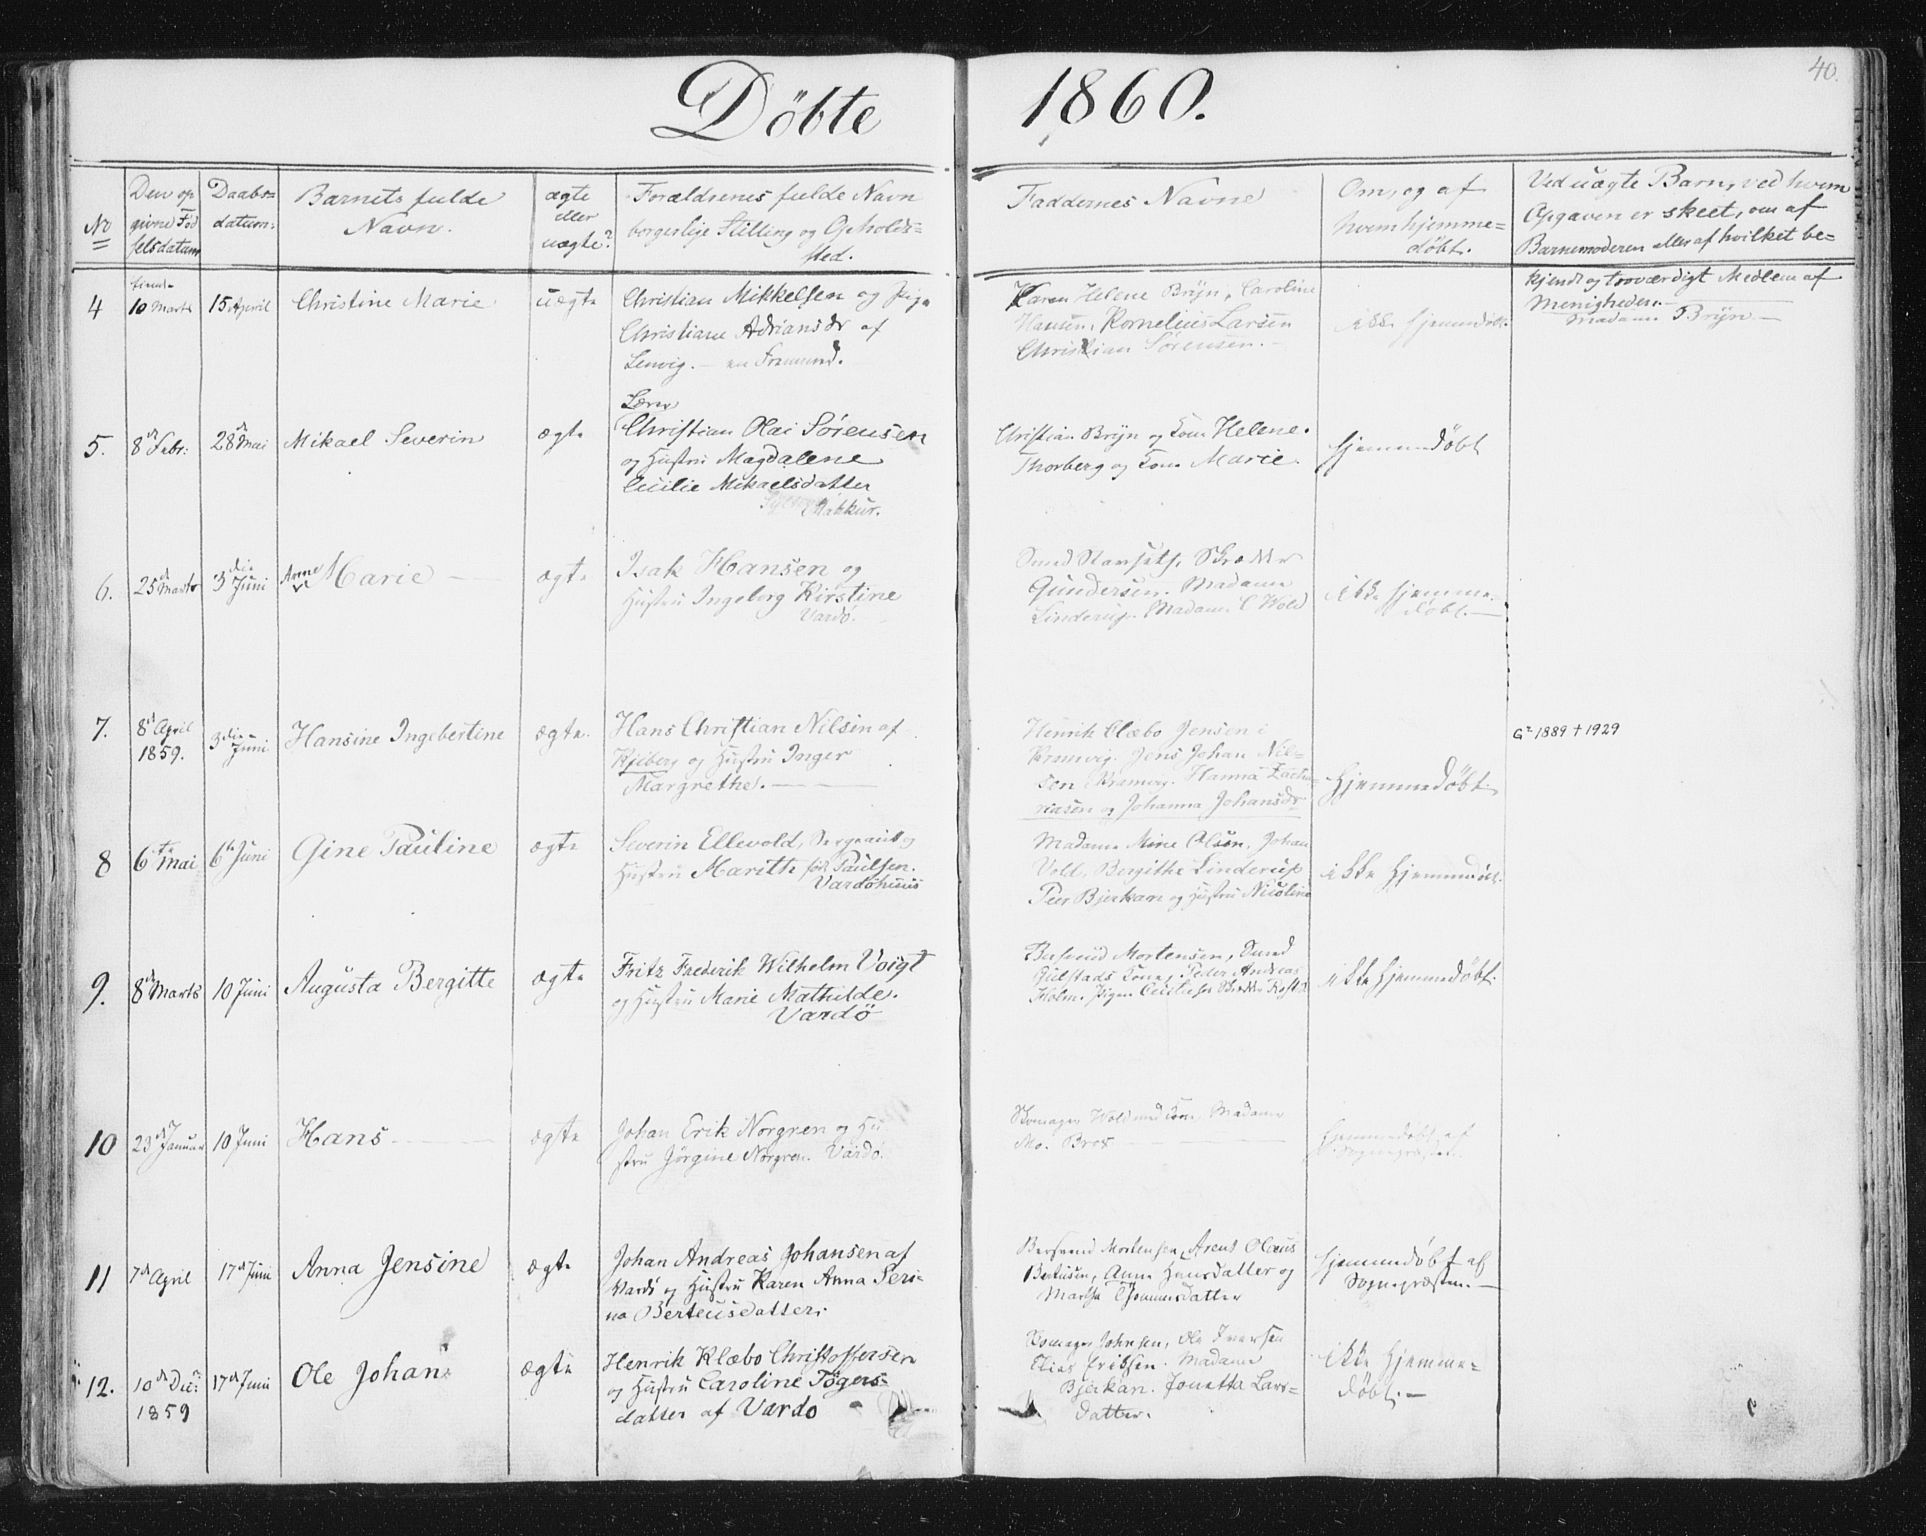 Döbte 1860.
40.
No
Den op
givne Fød
selsdatum
Daabs=
datum.
Barnets fulde
Navn.
ægte
eller
uægte?
Forældrenes fulde Navn
borgerlige Stilling og Opholds=
sted.
Faddernes Navne
Om, og af
hvem hjemme=
døbt.
Ved uægte Barn, ved hvem
Opgaven er skeet, om af
Barnemoderen eller af hvilket be=
kjendt og troværdigt Medlem af
Menigheden.
4
10 Marts
15 April
Christine Marie
uægte
Christian Mikkelsen og Pige
Christiane Adriansdr af
Lenvig. — en Fremmed.
Karen Helene Brijn, Caroline
Hansen, Kornelius Larsen
Christian Sörensen. —
ikke hjemmedøbt.
Madame Brijn —
5.
8d Febr:
28d Mai
Mikael Severin
ægte
Lærer
Christian Olai Sörensen
og Hustru Magdalene
Cecilie Mikaelsdatter
Makkur.
Christian Brijn og Kone Helene.
Thorberg og Kone Marie.
hjemmedøbt
6.
25d Marts
3die Juni
Anne
Marie —
ægte
Isak Hansen og
Hustru Ingeborg Kirstine
Vardö.
Smed Stamseth, Skræder
Gundersen. Madame
Linderup. Madame C Wold
ikke hjemme=
døbt. —
7.
8d April
1859.
3die Juni
Hansine Ingebertine
ægte.
Hans Christian Nilsen af
Kjiberg og Hustru Inger
Margrethe. —
Henrik Clæbo Jensen i
Kramvig. Jens Johan Nil=
sen Kramvig. Hanna Zacha=
riasen og Johanna Johansdr
Hjemmedöbt.
G= 1889 + 1929
8
6te Mai
6te Juni
Gine Pauline
ægte
Severin Ellevold, Sergeant og
Hustru Marith föd Paulsen.
Vardöhuus
Madame Mine Olsen, Johan
Vold, Bergithe Linderup
Peer Bjerkam og Hustru Nicoline
ikke Hjemmedöbt.
9.
8d Marts
10 Juni
Augusta Bergitte
ægte
Fritz Frederik Wilhelm Voigt
og Hustru Marie Mathilde.
Vardö
Mortensen, Smed
Gulstads Kone, Peder Andreas
Holm. Pigen
ikke Hjemmedöbt.
10
23d Januar
10 Juni
Hans —
ægte
Johan Erik Norgren og Hu
stru Jörgine Norgren. Vardö.
Skomager Wold med Kone, Madame
Mo. Brox —
Hjemmedøbt af
Sognepræsten.
11
7d April
17d Juni
Anna Jensine
ægte
Johan Andreas Johansen af
Vardö og Hustru Karen Anna Seri=
na Berteusdatter.
Bersvend Mortensen, Arent Olaus
Berteusen, Anne Hansdatter og
Martha Thommesdatter
hjemmedöbt af
Sognepræsten. —
12.
10d Dec:
1859
17d Juni
Ole Johan
ægte
Henrik Klæbo Christoffersen
og Hustru Caroline Tögers=
datter af Vardö
Skomager Johnsen, Ole Iversen
Elias Eriksen. Madame
Bjerkan. Jonetta Lars=
datter.
ikke Hjemme=
döbt. —